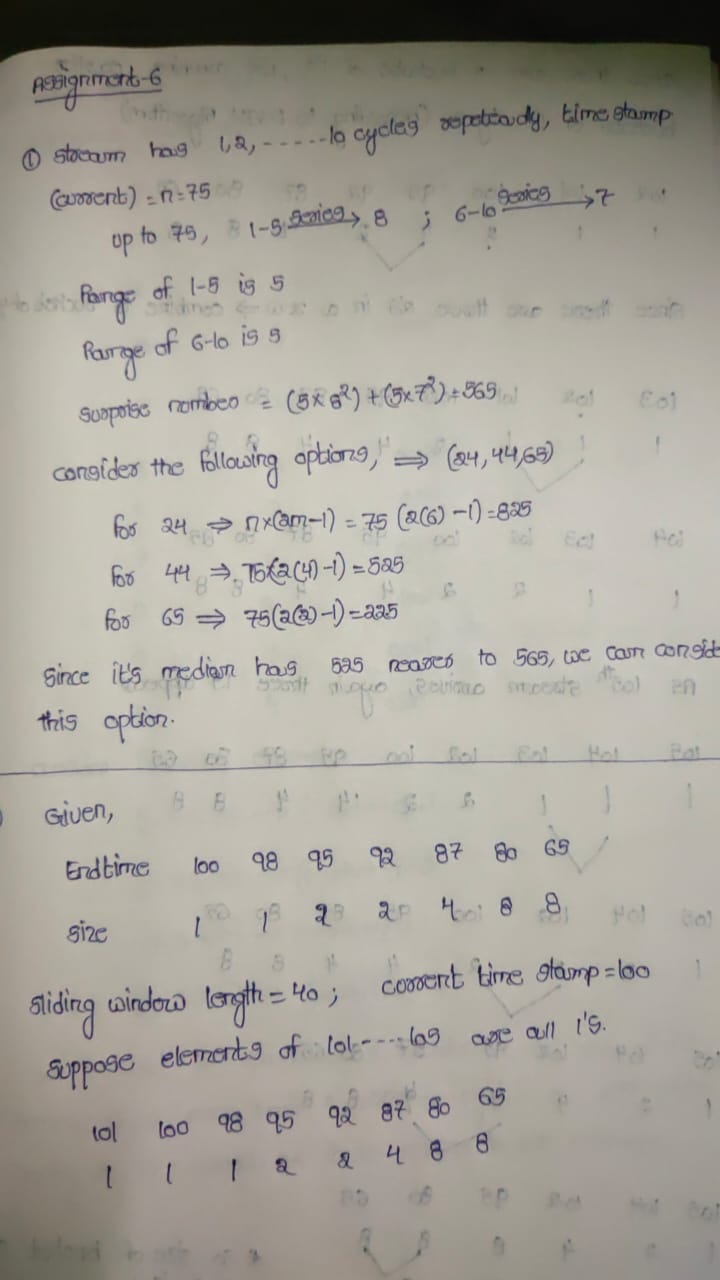 Assignment-6
① stream has 1,2,------10 cycles repeteadly, time stamp
(current) = n=75
up to 75, 1-5 series→ 8 ; 6-10 series→ 7
Range of 1-5 is 5
Range of 6-10 is 5
surpise number = (5×8²)+(5×7²)=565
consider the following options, ⇒ (24,44,65)
for 24 ⇒ n×(2m-1) = 75 (2(6)-1)=825
for 44 ⇒ 75×(2(4)-1)=525
for 65 ⇒ 75(2(2)-1)=225
since it's median has 525 nearer to 565, we can conside
this option.
Given,
Endtime 100 98 95 92 87 80 65
size 1 1 2 2 4 8 8
sliding window length=40; current time stamp=100
suppose elements of 101----105 are all 1's.
101 100 98 95 92 87 80 65
1 1 1 2 2 4 8 8